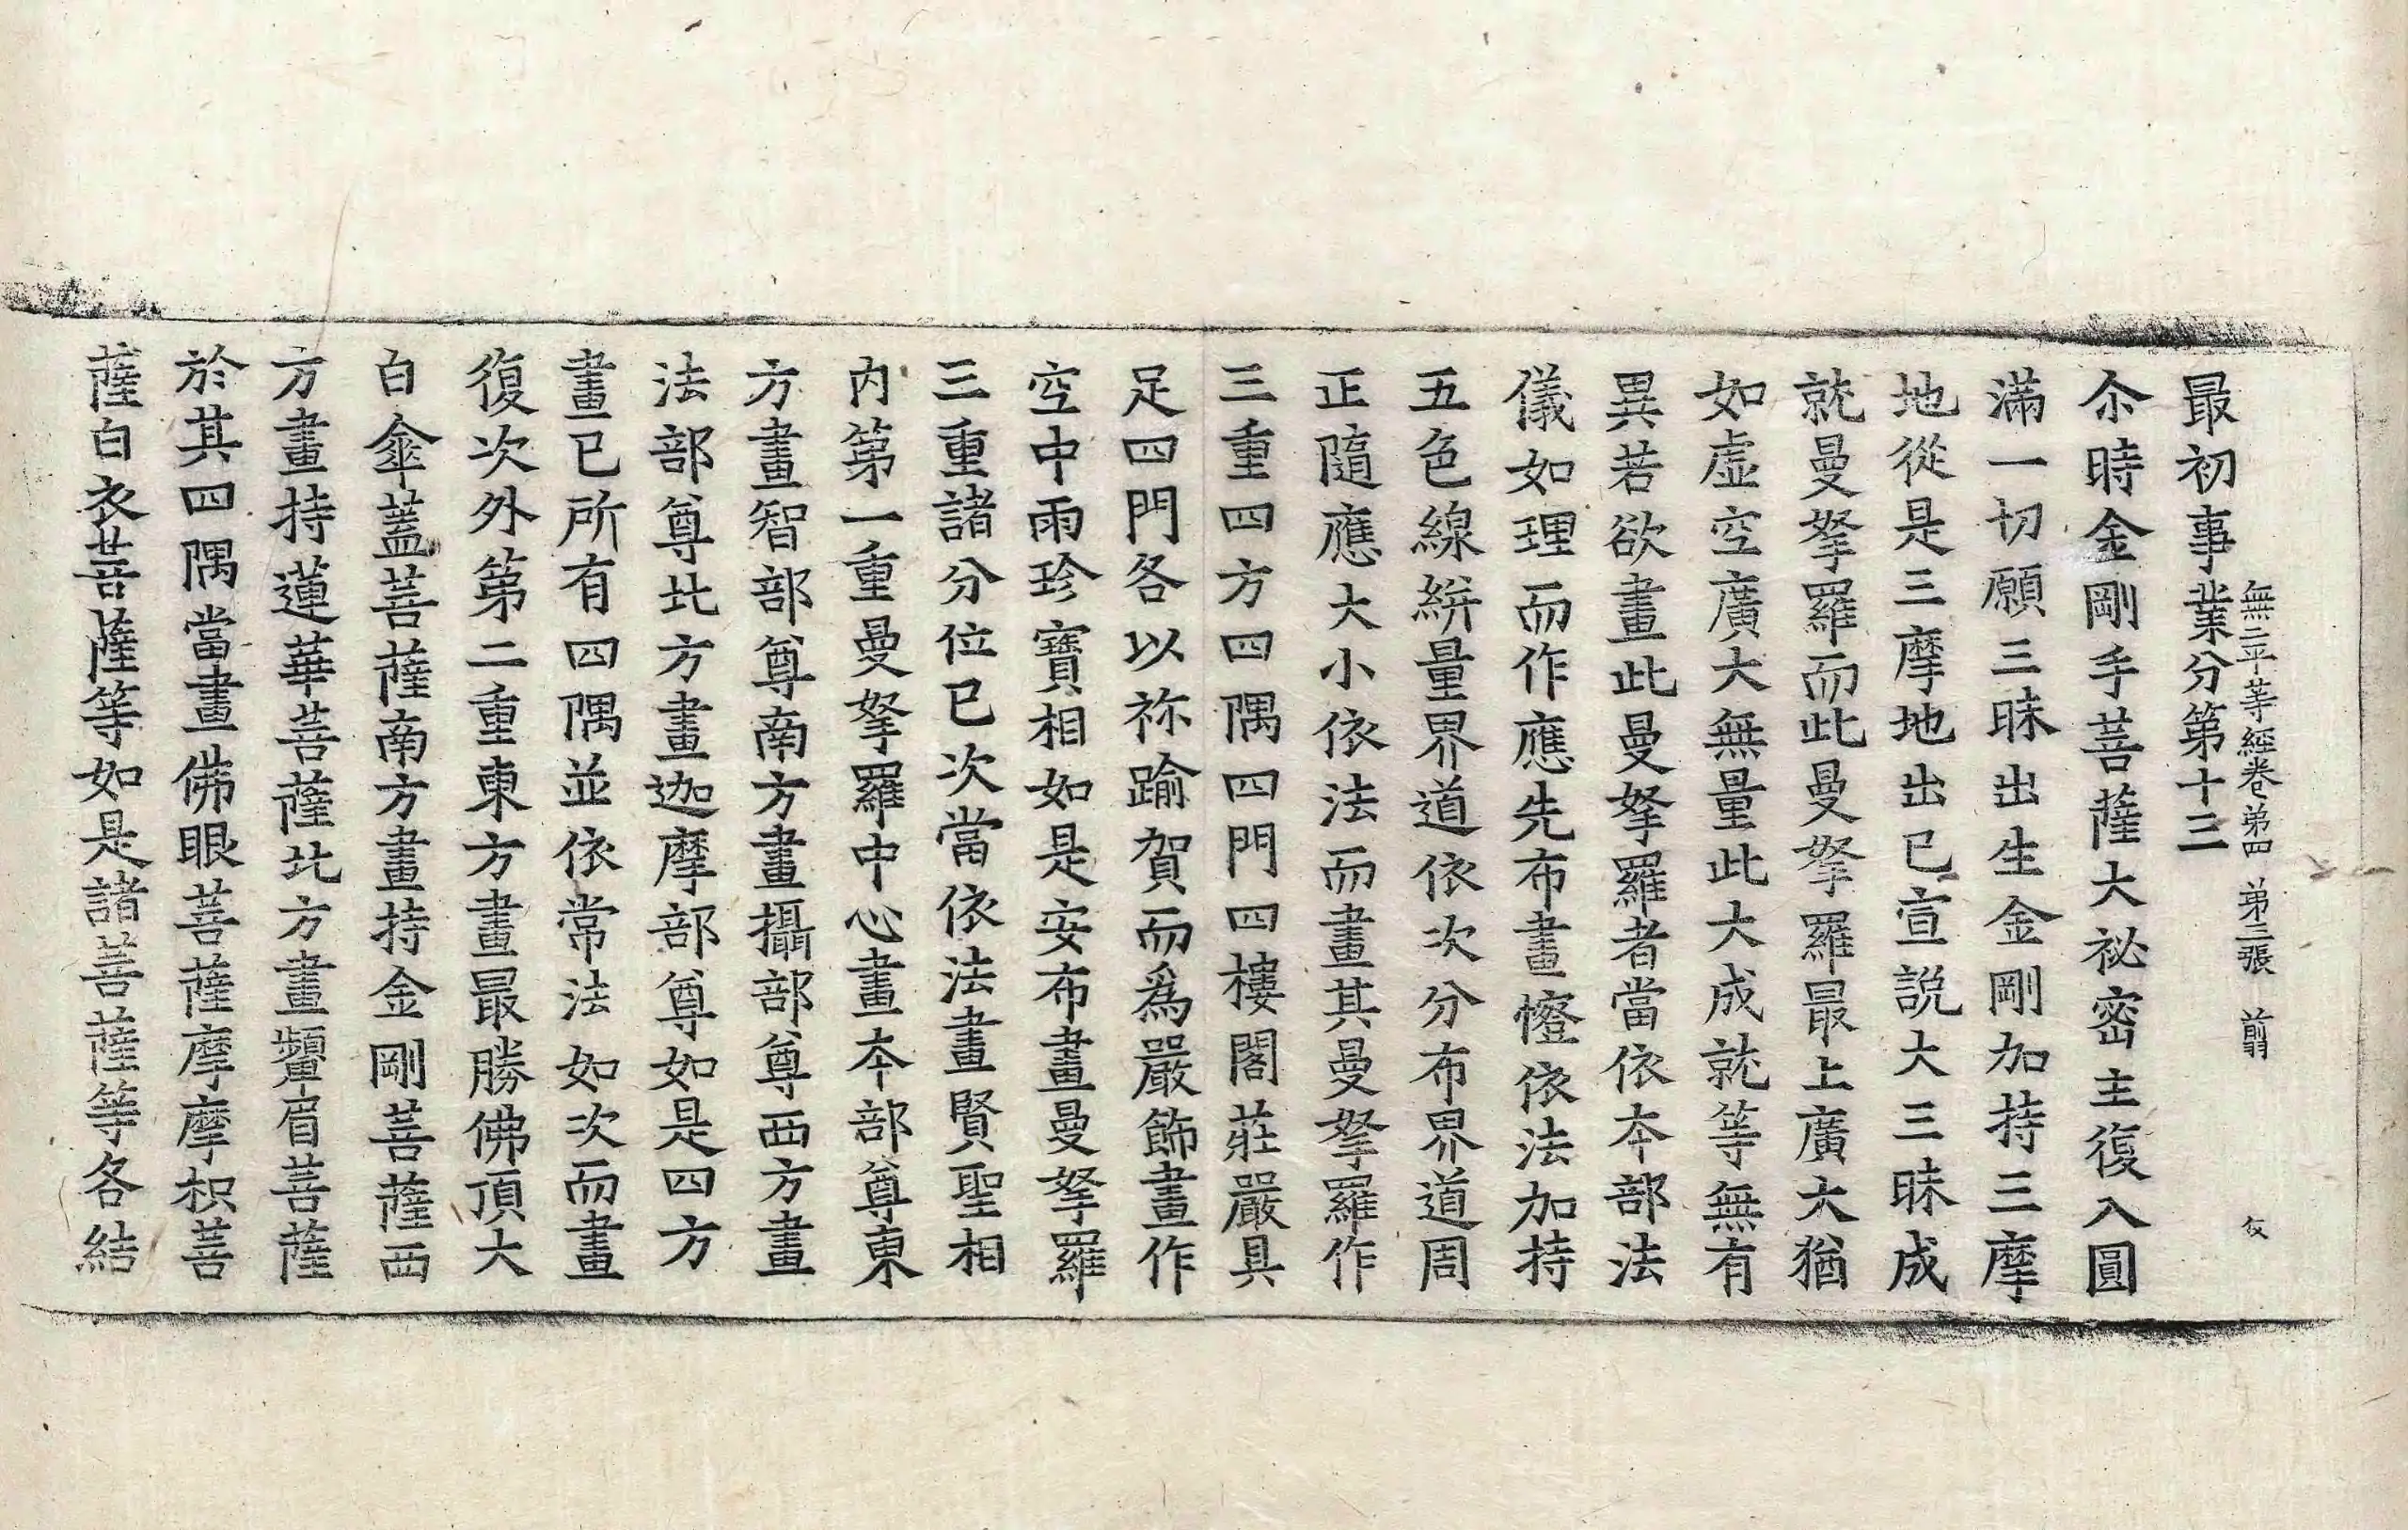 最初事業分第十三
無二平等經卷第四 第三張 翦 伩
尒時金剛手菩薩大祕密主復入圓
滿一切願三昧出生金剛加持三摩
地從是三摩地出已宣說大三昧成
就曼拏羅而此曼拏羅最上廣大猶
如虛空廣大無量此大成就等無有
異若欲畫此曼拏羅者當依本部法
儀如理而作應先布畫㡧依法加持
五色線絣量界道依次分布界道周
正隨應大小依法而畫其曼拏羅作
三重四方四隅四門四樓閣莊嚴具
足四門各以祢踰賀而爲嚴飾畫作
空中雨珍寶相如是安布畫曼拏羅
三重諸分位已次當依法畫賢聖相
內第一重曼拏羅中心畫本部尊東
方畫智部尊南方畫攝部尊西方畫
法部尊北方畫迦摩部尊如是四方
畫已所有四隅並依常法如次而畫
復次外第二重東方畫最勝佛頂大
白傘蓋菩薩南方畫持金剛菩薩西
方畫持蓮華菩薩北方畫顰眉菩薩
於其四隅當畫佛眼菩薩摩摩枳菩
薩白衣菩薩等如是諸菩薩等各結